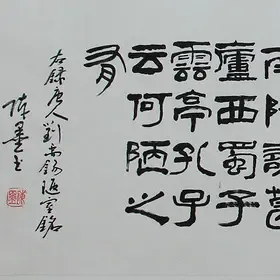 南陽諸葛
廬西蜀子
雲亭孔子
云何陋之
有
右録唐人劉禹錫陋室銘
陳墨书